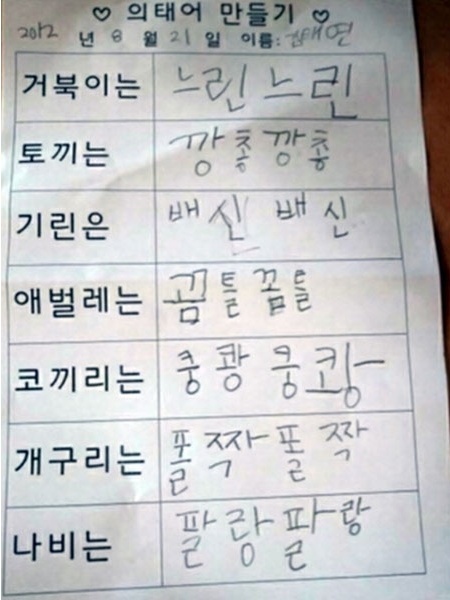 ♡ 의태어 만들기 ♡
2012 년 8 월 21 일 이름: 김태연
거북이는 느린느린
토끼는 깡총깡총
기린은 배신 배신
애벌레는 꿈틀꿈틀
코끼리는 쿵쾅 쿵쾅
개구리는 폴짝 폴짝
나비는 팔랑팔랑